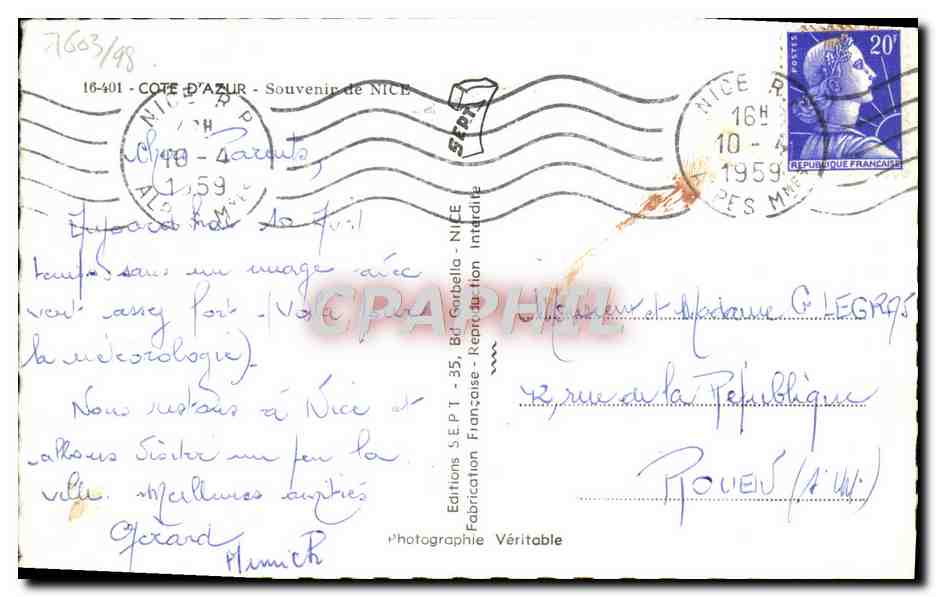 7603/98
16-401 - COTE D'AZUR - Souvenir de NICE
NICE R P
10 - 4
1959
SEPT
NICE R
16H
10 - 4
1959
ALPES MMES
POSTES
20F
REPUBLIQUE FRANÇAISE
Chers Parents,
Aujourd'hui 10 Avril
temps sans un nuage avec
vent assez fort. (Voilà pour
la météorologie).
Nous restons à Nice et
allons visiter un peu la
ville. Meilleures amitiés
Gérard
Editions SEPT - 35, Bd Gorbella - NICE
Fabrication Française - Reproduction Interdite
Photographie Véritable
Monsieur et Madame G LEGRAS
72, rue de la République
ROUEN
CPAPHIL